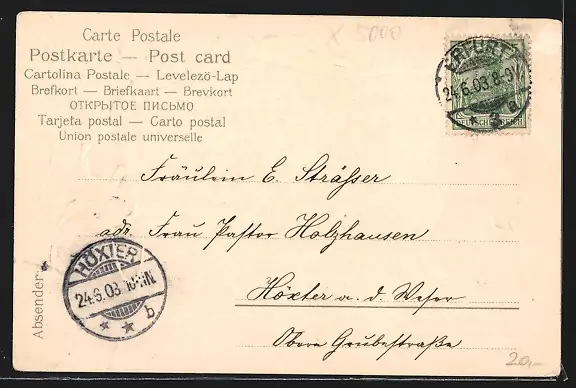 Carte Postale
Postkarte — Post card
Cartolina Postale — Levelező-Lap
Brefkort — Briefkaart — Brevkort
ОТКРЫТОЕ ПИСЬМО
Tarjeta postal — Carto postal
Union postale universelle
X 5000
ERFURT
24.6.03 8-9V
* 3 a
DEUTSCHES REICH
Fräulein E. Strässer
adr. Frau Pastor Holzhausen
Höxter a. d. Weser
Obere Grubestraße
HÖXTER
24.6.03
* * b
Absender:
20,-